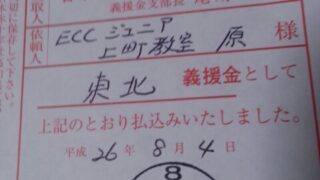 義援金支部長
取人
依頼人
ECC ジュニア
上町教室 原 様
東北 義援金として
上記のとおり払込みいたしました。
平成 26 年 8 月 4 日
8
切に保存して下さい。